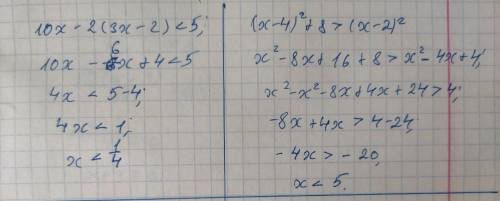 10x - 2(3x - 2) < 5;
10x - 6x + 4 < 5
4x < 5 - 4;
4x < 1;
x < 1/4
(x - 4)² + 8 > (x - 2)²
x² - 8x + 16 + 8 > x² - 4x + 4;
x² - x² - 8x + 4x + 24 > 4;
-8x + 4x > 4 - 24;
-4x > -20;
x < 5.